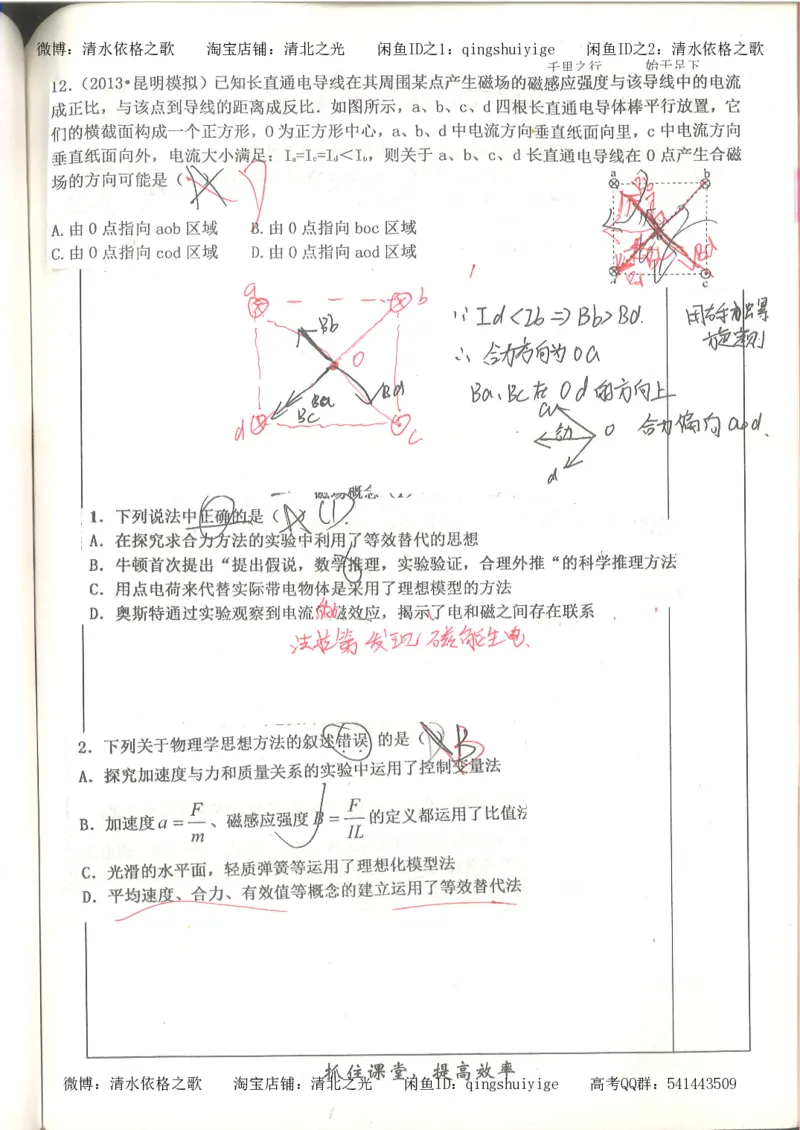 微博：清水依格之歌 淘宝店铺：清北之光 闲鱼ID之1：qingshuiyige 闲鱼ID之2：清水依格之歌
千里之行 始于足下
12.（2013•昆明模拟）已知长直通电导线在其周围某点产生磁场的磁感应强度与该导线中的电流
成正比，与该点到导线的距离成反比．如图所示，a、b、c、d 四根长直通电导体棒平行放置，它
们的横截面构成一个正方形，O 为正方形中心，a、b、d 中电流方向垂直纸面向里，c 中电流方向
垂直纸面向外，电流大小满足：Ia=Ic=Id＜Ib，则关于 a、b、c、d 长直通电导线在 O 点产生合磁
场的方向可能是（
a b
A.由 O 点指向 aob 区域 B.由 O 点指向 boc 区域
C.由 O 点指向 cod 区域 D.由 O 点指向 aod 区域
d c
a b
Bb
O
Ba
Bc
Bd
d c
∵ Id<Ib => Bb>Bd.
∴ 合力方向为 Oa
Ba、Bc在 Od 的方向上
a O 合力偏向 aod.
合力
d
1．下列说法中正确的是（ A D
A．在探究求合力方法的实验中利用了等效替代的思想
B．牛顿首次提出“提出假说，数学推理，实验验证，合理外推“的科学推理方法
C．用点电荷来代替实际带电物体是采用了理想模型的方法
D．奥斯特通过实验观察到电流的磁效应，揭示了电和磁之间存在联系
法拉第发现磁能生电.
2．下列关于物理学思想方法的叙述错误的是（ B
A．探究加速度与力和质量关系的实验中运用了控制变量法
B．加速度 a = F/m 、磁感应强度 B = F/IL 的定义都运用了比值法
C．光滑的水平面，轻质弹簧等运用了理想化模型法
D．平均速度、合力、有效值等概念的建立运用了等效替代法
抓住课堂，提高效率
微博：清水依格之歌 淘宝店铺：清北之光 闲鱼ID：qingshuiyige 高考QQ群：541443509